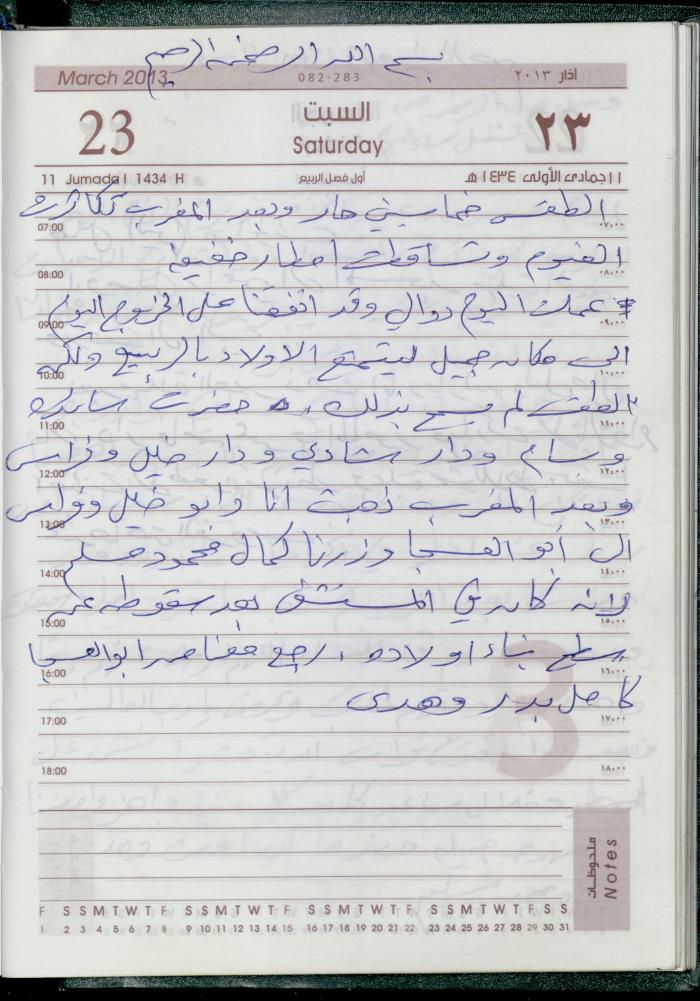 بسم الله الرحمن الرحيم
March 2013 082-283 آذار ٢٠١٣
23 السبت ٢٣
Saturday
11 Jumada I 1434 H أول فصل الربيع ١١ جمادى الأولى ١٤٣٤ هـ
الطقس خماسيني حار وبعد المغرب تكاثرت
07:00 ٠٧:٠٠
الغيوم وتساقطت امطار خفيفة
08:00 ٠٨:٠٠
* عملت اليوم دوالي وقد اتفقنا على الخروج اليوم
09:00 ٠٩:٠٠
الى مكان جميل ليتمتع الاولاد بالربيع ولكن
10:00 ١٠:٠٠
الطقس لم يسمح بذلك، حضرت
11:00 ١١:٠٠
وسام ودار شادي ودار خليل وفراس
12:00 ١٢:٠٠
وبعد المغرب ذهبت انا وابو خليل وفراس
13:00 ١٣:٠٠
الى ابو العسجا وزرنا كمال محمود مسلم
14:00 ١٤:٠٠
لانه كان في المستشفى بعد سقوطه عن
15:00 ١٥:٠٠
سطح بناء اولاده، رجع معنا من ابو العسجا
16:00 ١٦:٠٠
كامل بدر وهدى
17:00 ١٧:٠٠
18:00 ١٨:٠٠
ملحوظات
Notes
F S S M T W T F S S M T W T F S S M T W T F S S M T W T F S S
1 2 3 4 5 6 7 8 9 10 11 12 13 14 15 16 17 18 19 20 21 22 23 24 25 26 27 28 29 30 31